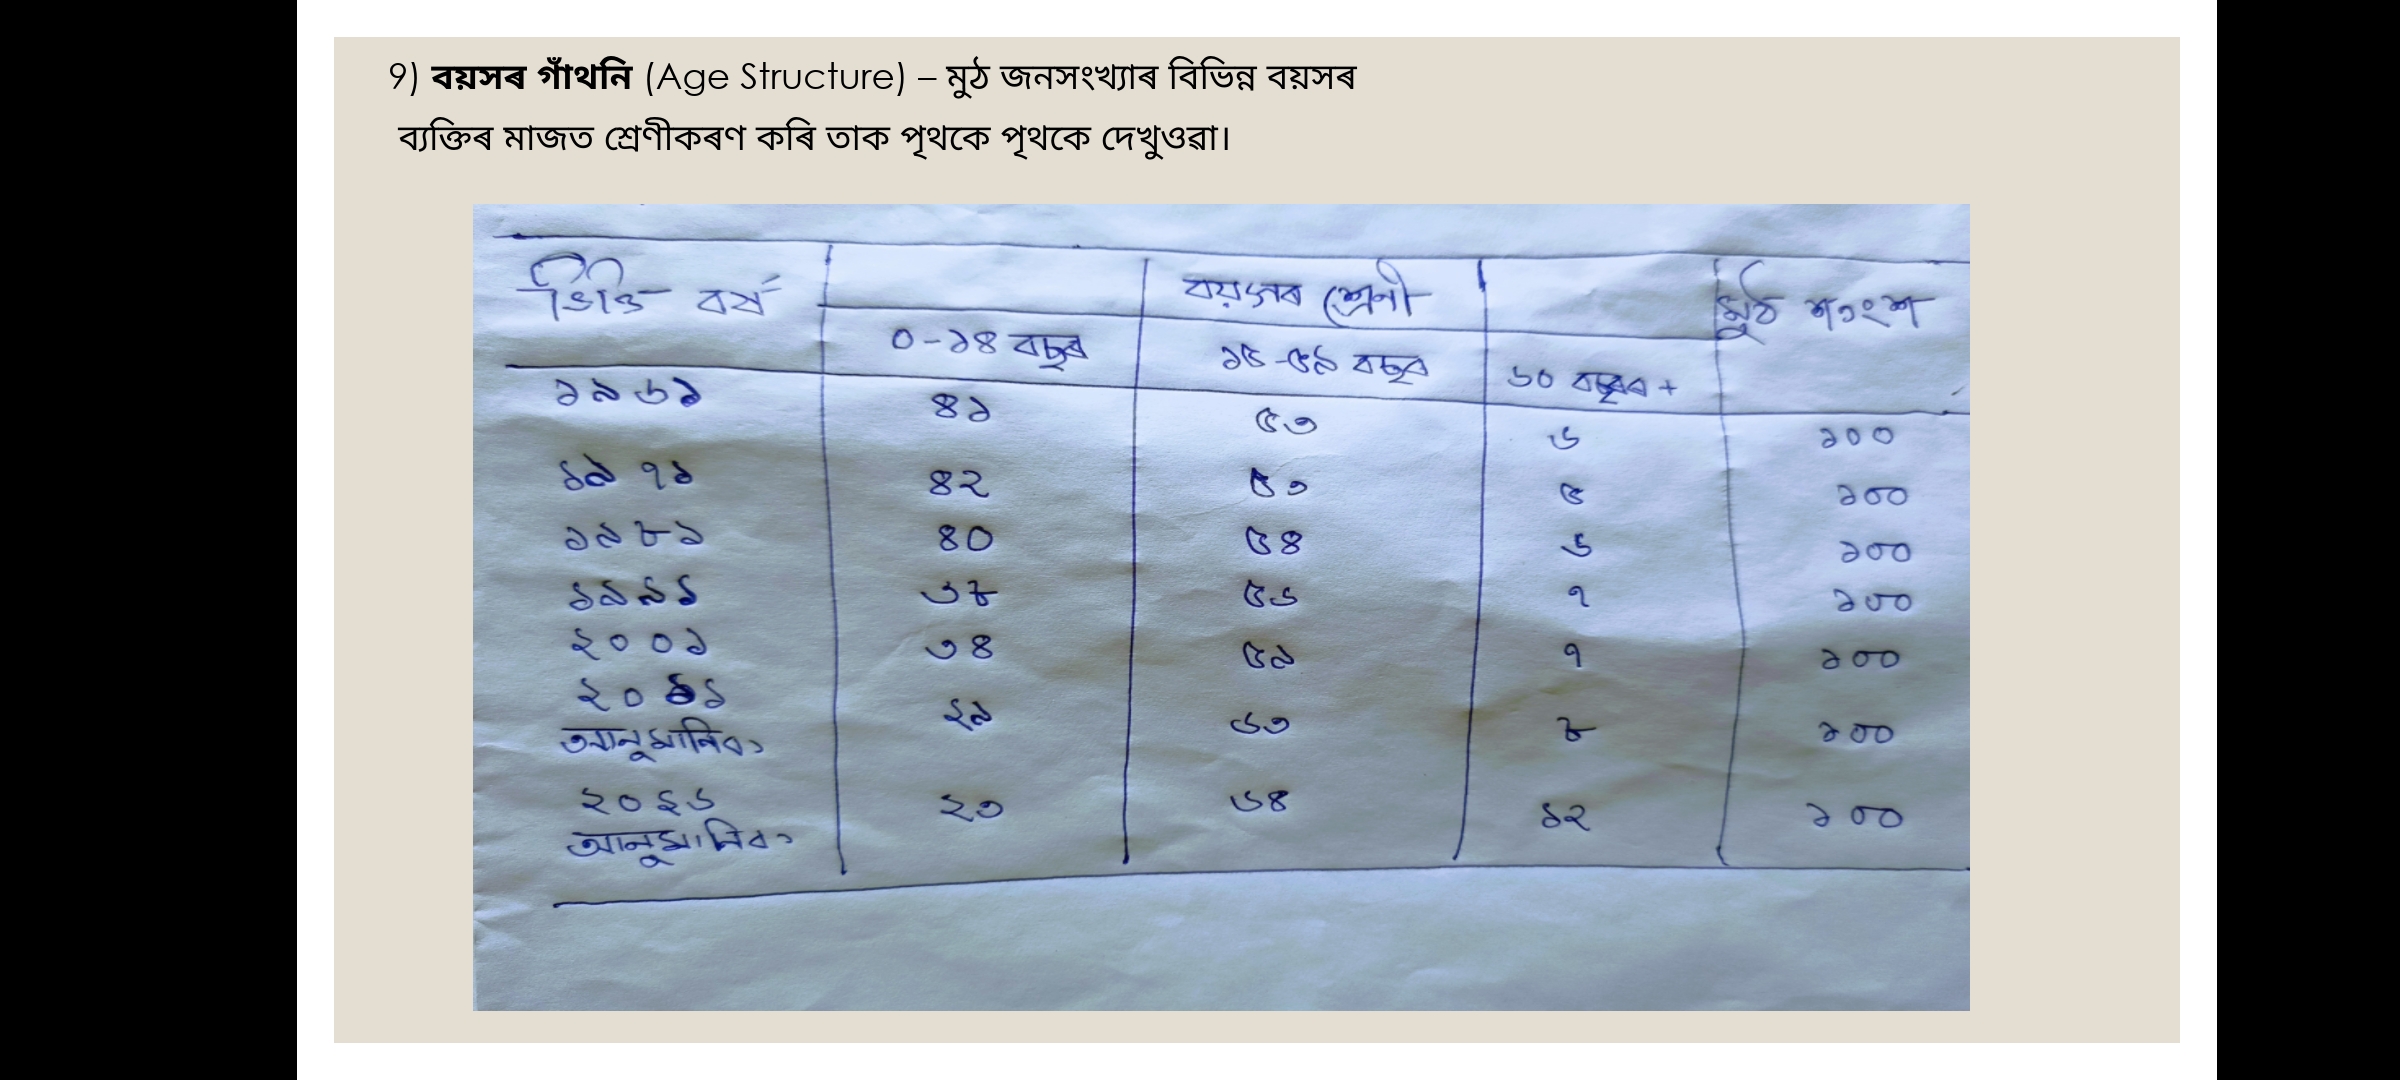 9) বয়সৰ গাঁথনি (Age Structure) – মুঠ জনসংখ্যাৰ বিভিন্ন বয়সৰ
ব্যক্তিৰ মাজত শ্ৰেণীকৰণ কৰি তাক পৃথকে পৃথকে দেখুওৱা।
ভিত্তি বৰ্ষ বয়সৰ শ্ৰেণী মুঠ শতাংশ
০-১৪ বছৰ ১৫-৫৯ বছৰ ৬০ বছৰৰ +
১৯৬১ ৪১ ৫৩ ৬ ১০০
১৯৭১ ৪২ ৫৩ ৫ ১০০
১৯৮১ ৪০ ৫৪ ৬ ১০০
১৯৯১ ৩৮ ৫৬ ৭ ১০০
২০০১ ৩৪ ৫৯ ৭ ১০০
২০১১ ২৯ ৬৩ ৮ ১০০
আনুমানিক
২০২৬ ২৩ ৬৪ ১২ ১০০
আনুমানিক